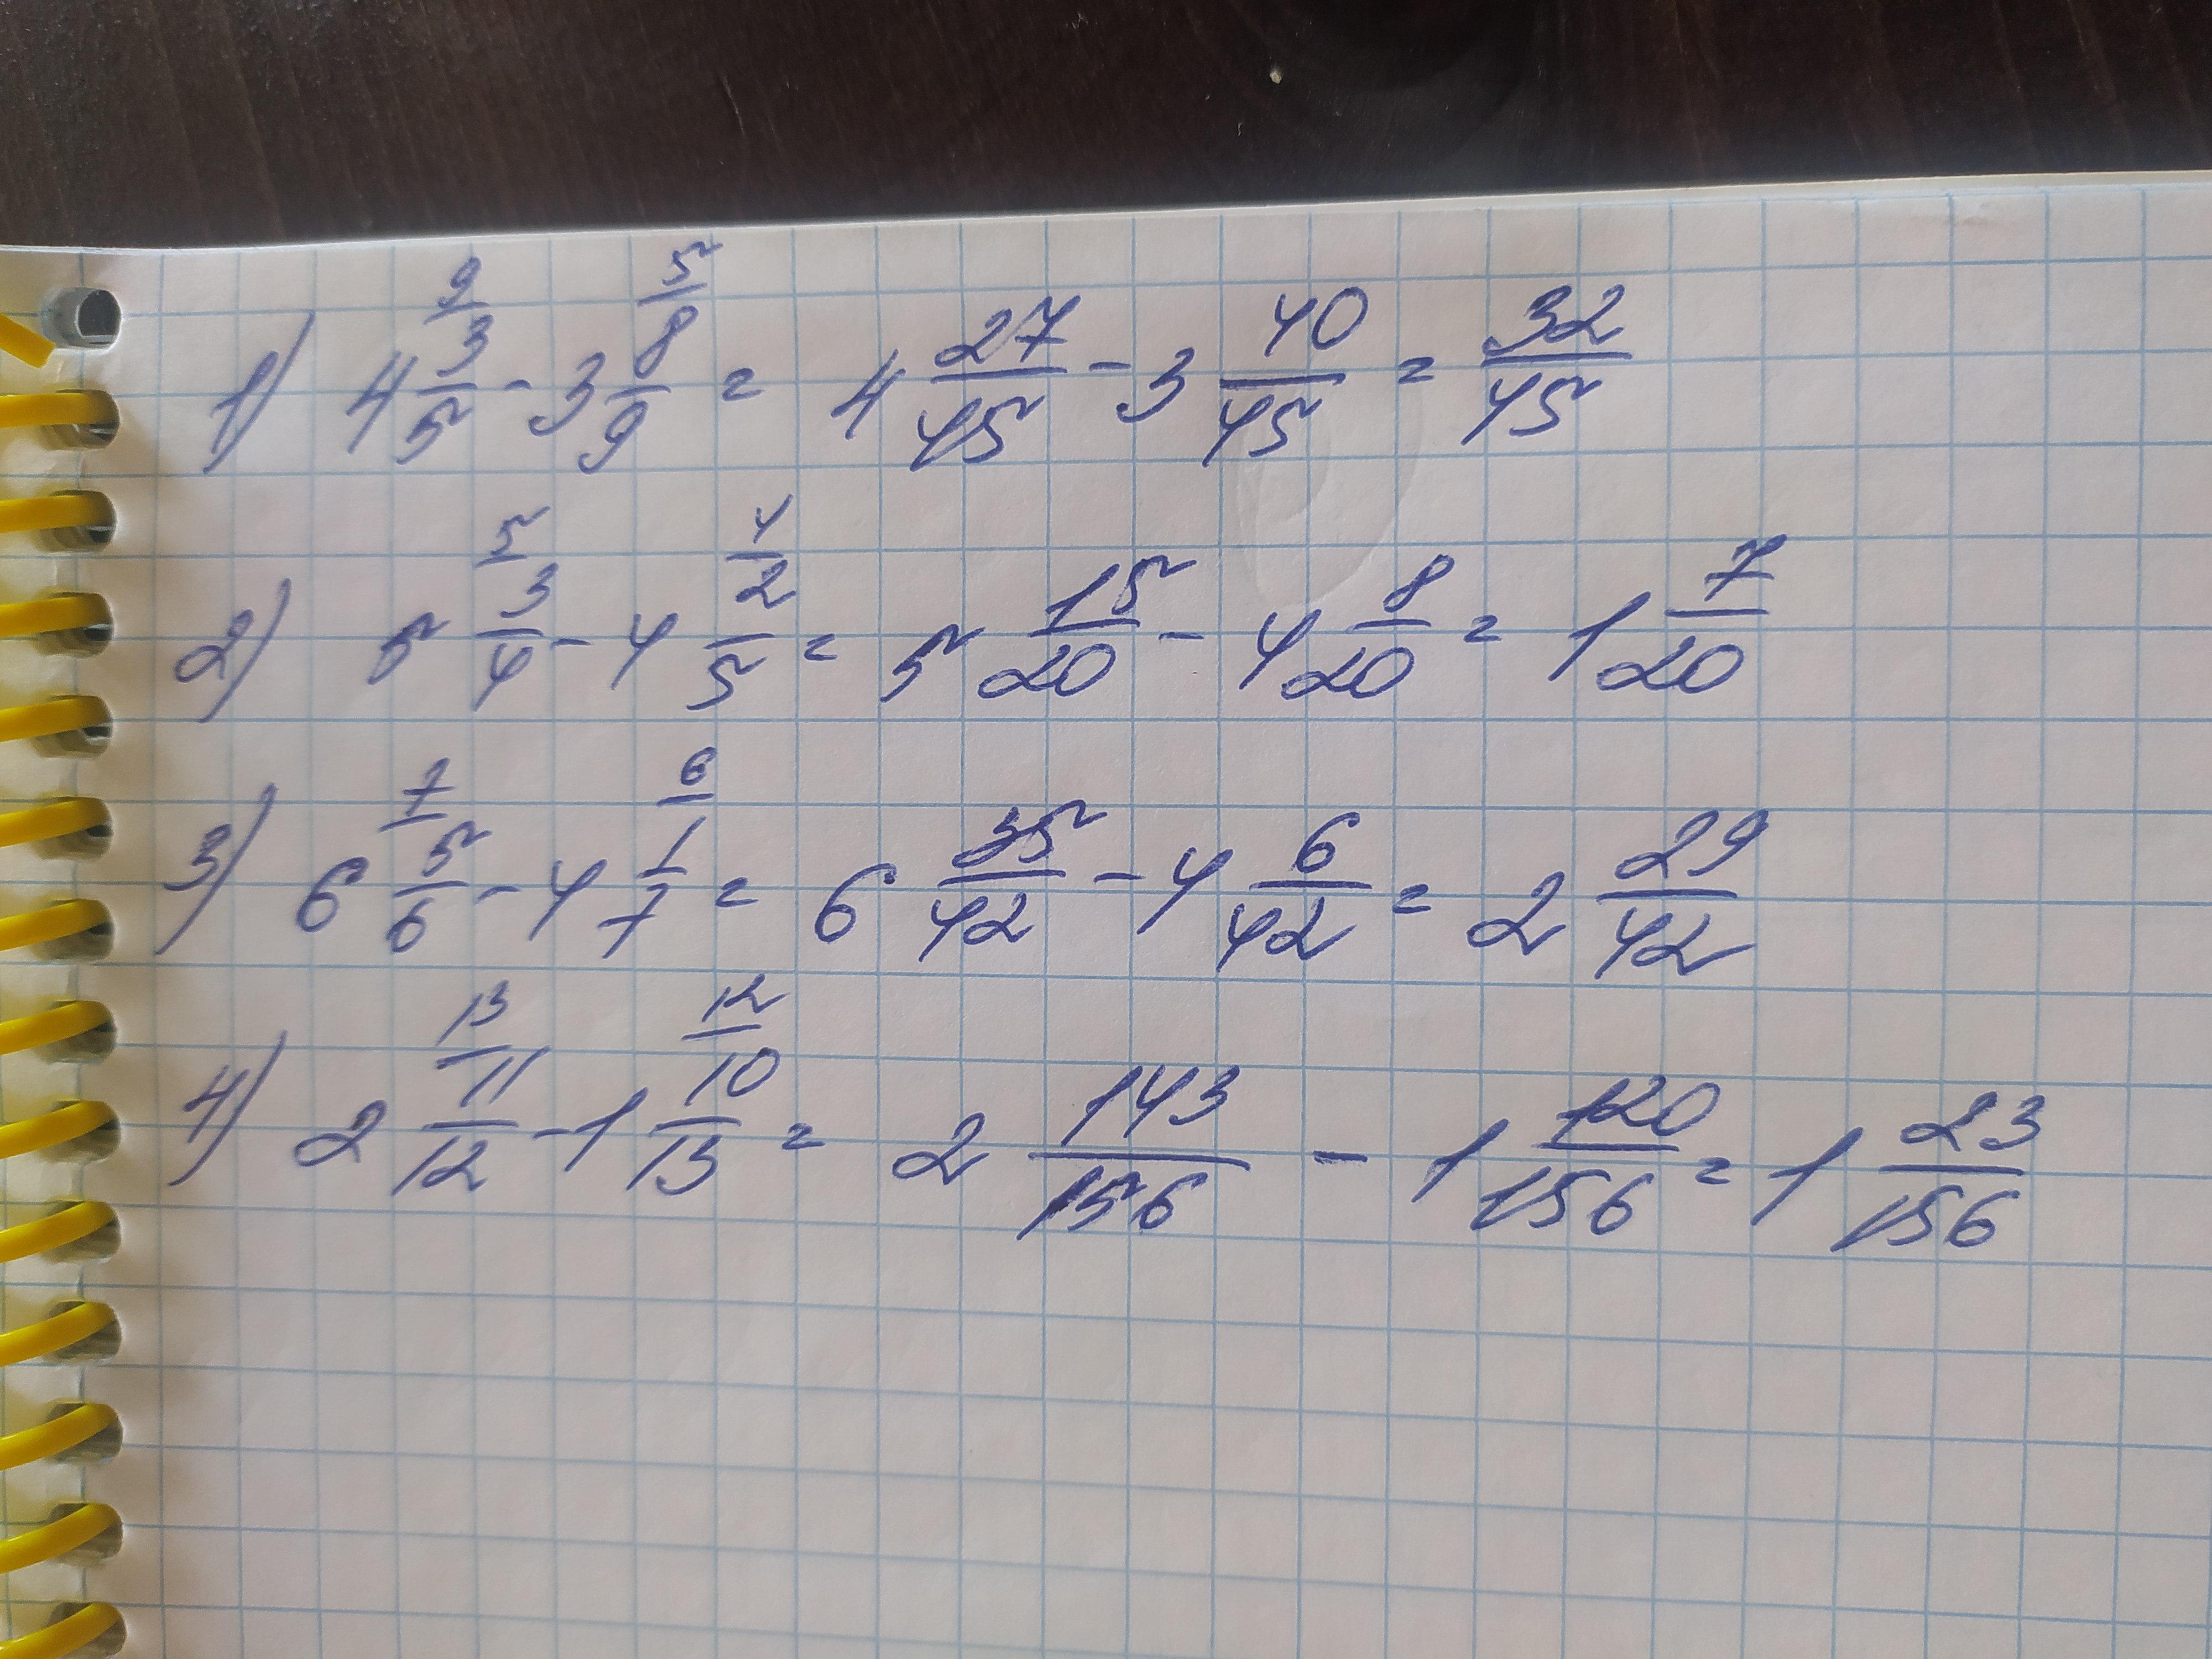 1) 4 3/5 - 3 8/9 = 4 27/45 - 3 40/45 = 32/45
2) 5 3/4 - 4 2/5 = 5 15/20 - 4 8/20 = 1 7/20
3) 6 5/6 - 4 1/7 = 6 35/42 - 4 6/42 = 2 29/42
4) 2 11/12 - 1 10/13 = 2 143/156 - 1 120/156 = 1 23/156